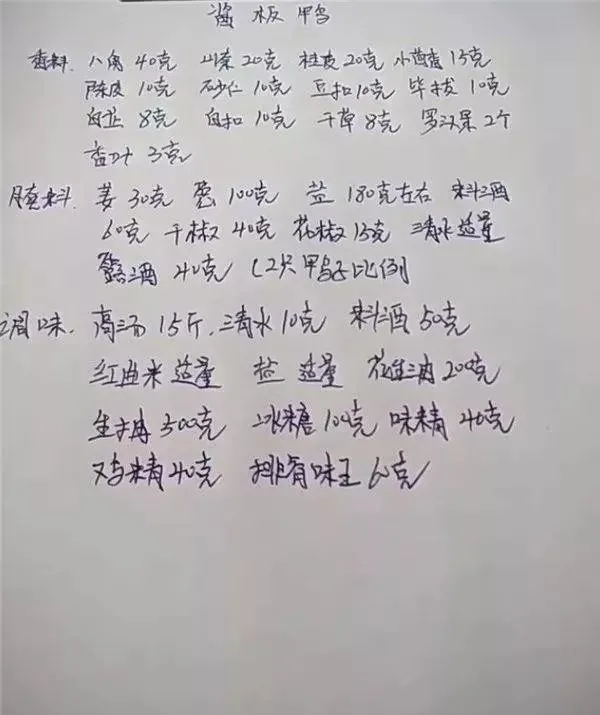 酱板鸭
香料 八角40克 山柰20克 桂皮20克 小茴香15克
陈皮10克 砂仁10克 豆扣10克 毕拔10克
白芷8克 白扣10克 干草8克 罗汉果2个
香叶3克
腌料 姜30克 葱100克 盐180克左右 料酒
60克 干椒40克 花椒15克 清水适量
露酒40克 (2只鸭子比例
调味. 高汤15斤. 清水10克 料酒50克
红曲米适量 盐适量 花生油200克
生抽300克 冰糖100克 味精40克
鸡精40克 排骨味王60克